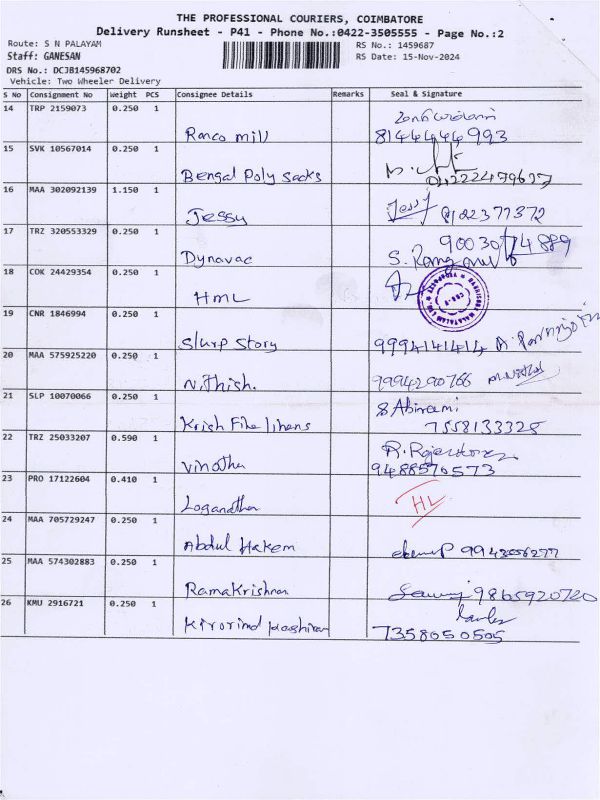 THE PROFESSIONAL COURIERS, COIMBATORE
Delivery Runsheet - P41 - Phone No.:0422-3505555 - Page No.:2
Route: S N PALAYAM
RS No.: 1459687
Staff: GANESAN
RS Date: 15-Nov-2024
DRS No.: DCJB145968702
Vehicle: Two Wheeler Delivery
S No Consignment No Weight PCS Consignee Details Remarks Seal & Signature
14 TRP 2159073 0.250 1
Ranco mill 8144444993
15 SVK 10567014 0.250 1
Bengal Poly sacks
16 MAA 302092139 1.150 1
Jessy Jessy
17 TRZ 320553329 0.250 1
90030 74889
Dynovac S.
18 COK 24429354 0.250 1
HML
19 CNR 1846994 0.250 1
Slurp Story 9994141414
20 MAA 575925220 0.250 1
Nithish. 9994290766
21 SLP 10070066 0.250 1
S Abirami
Krish Fine linens 7558133325
22 TRZ 25033207 0.590 1
Vinotha 9488570573
23 PRO 17122604 0.410 1
HL
Loganathan
24 MAA 705729247 0.250 1
Abdul Hakem
25 MAA 574302883 0.250 1
RamaKrishnan 9865920720
26 KMU 2916721 0.250 1
7358050505